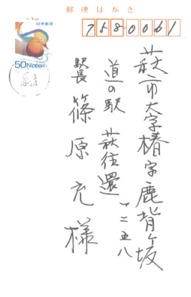 郵便はがき
7580061
日本郵便
50 NIPPON
萩市大字椿字鹿背ヶ坂
一二五八
道の駅 萩往還
駅長
篠原充様